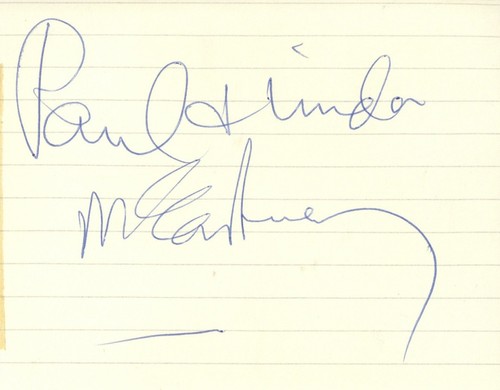 Paul & Linda
McCartney